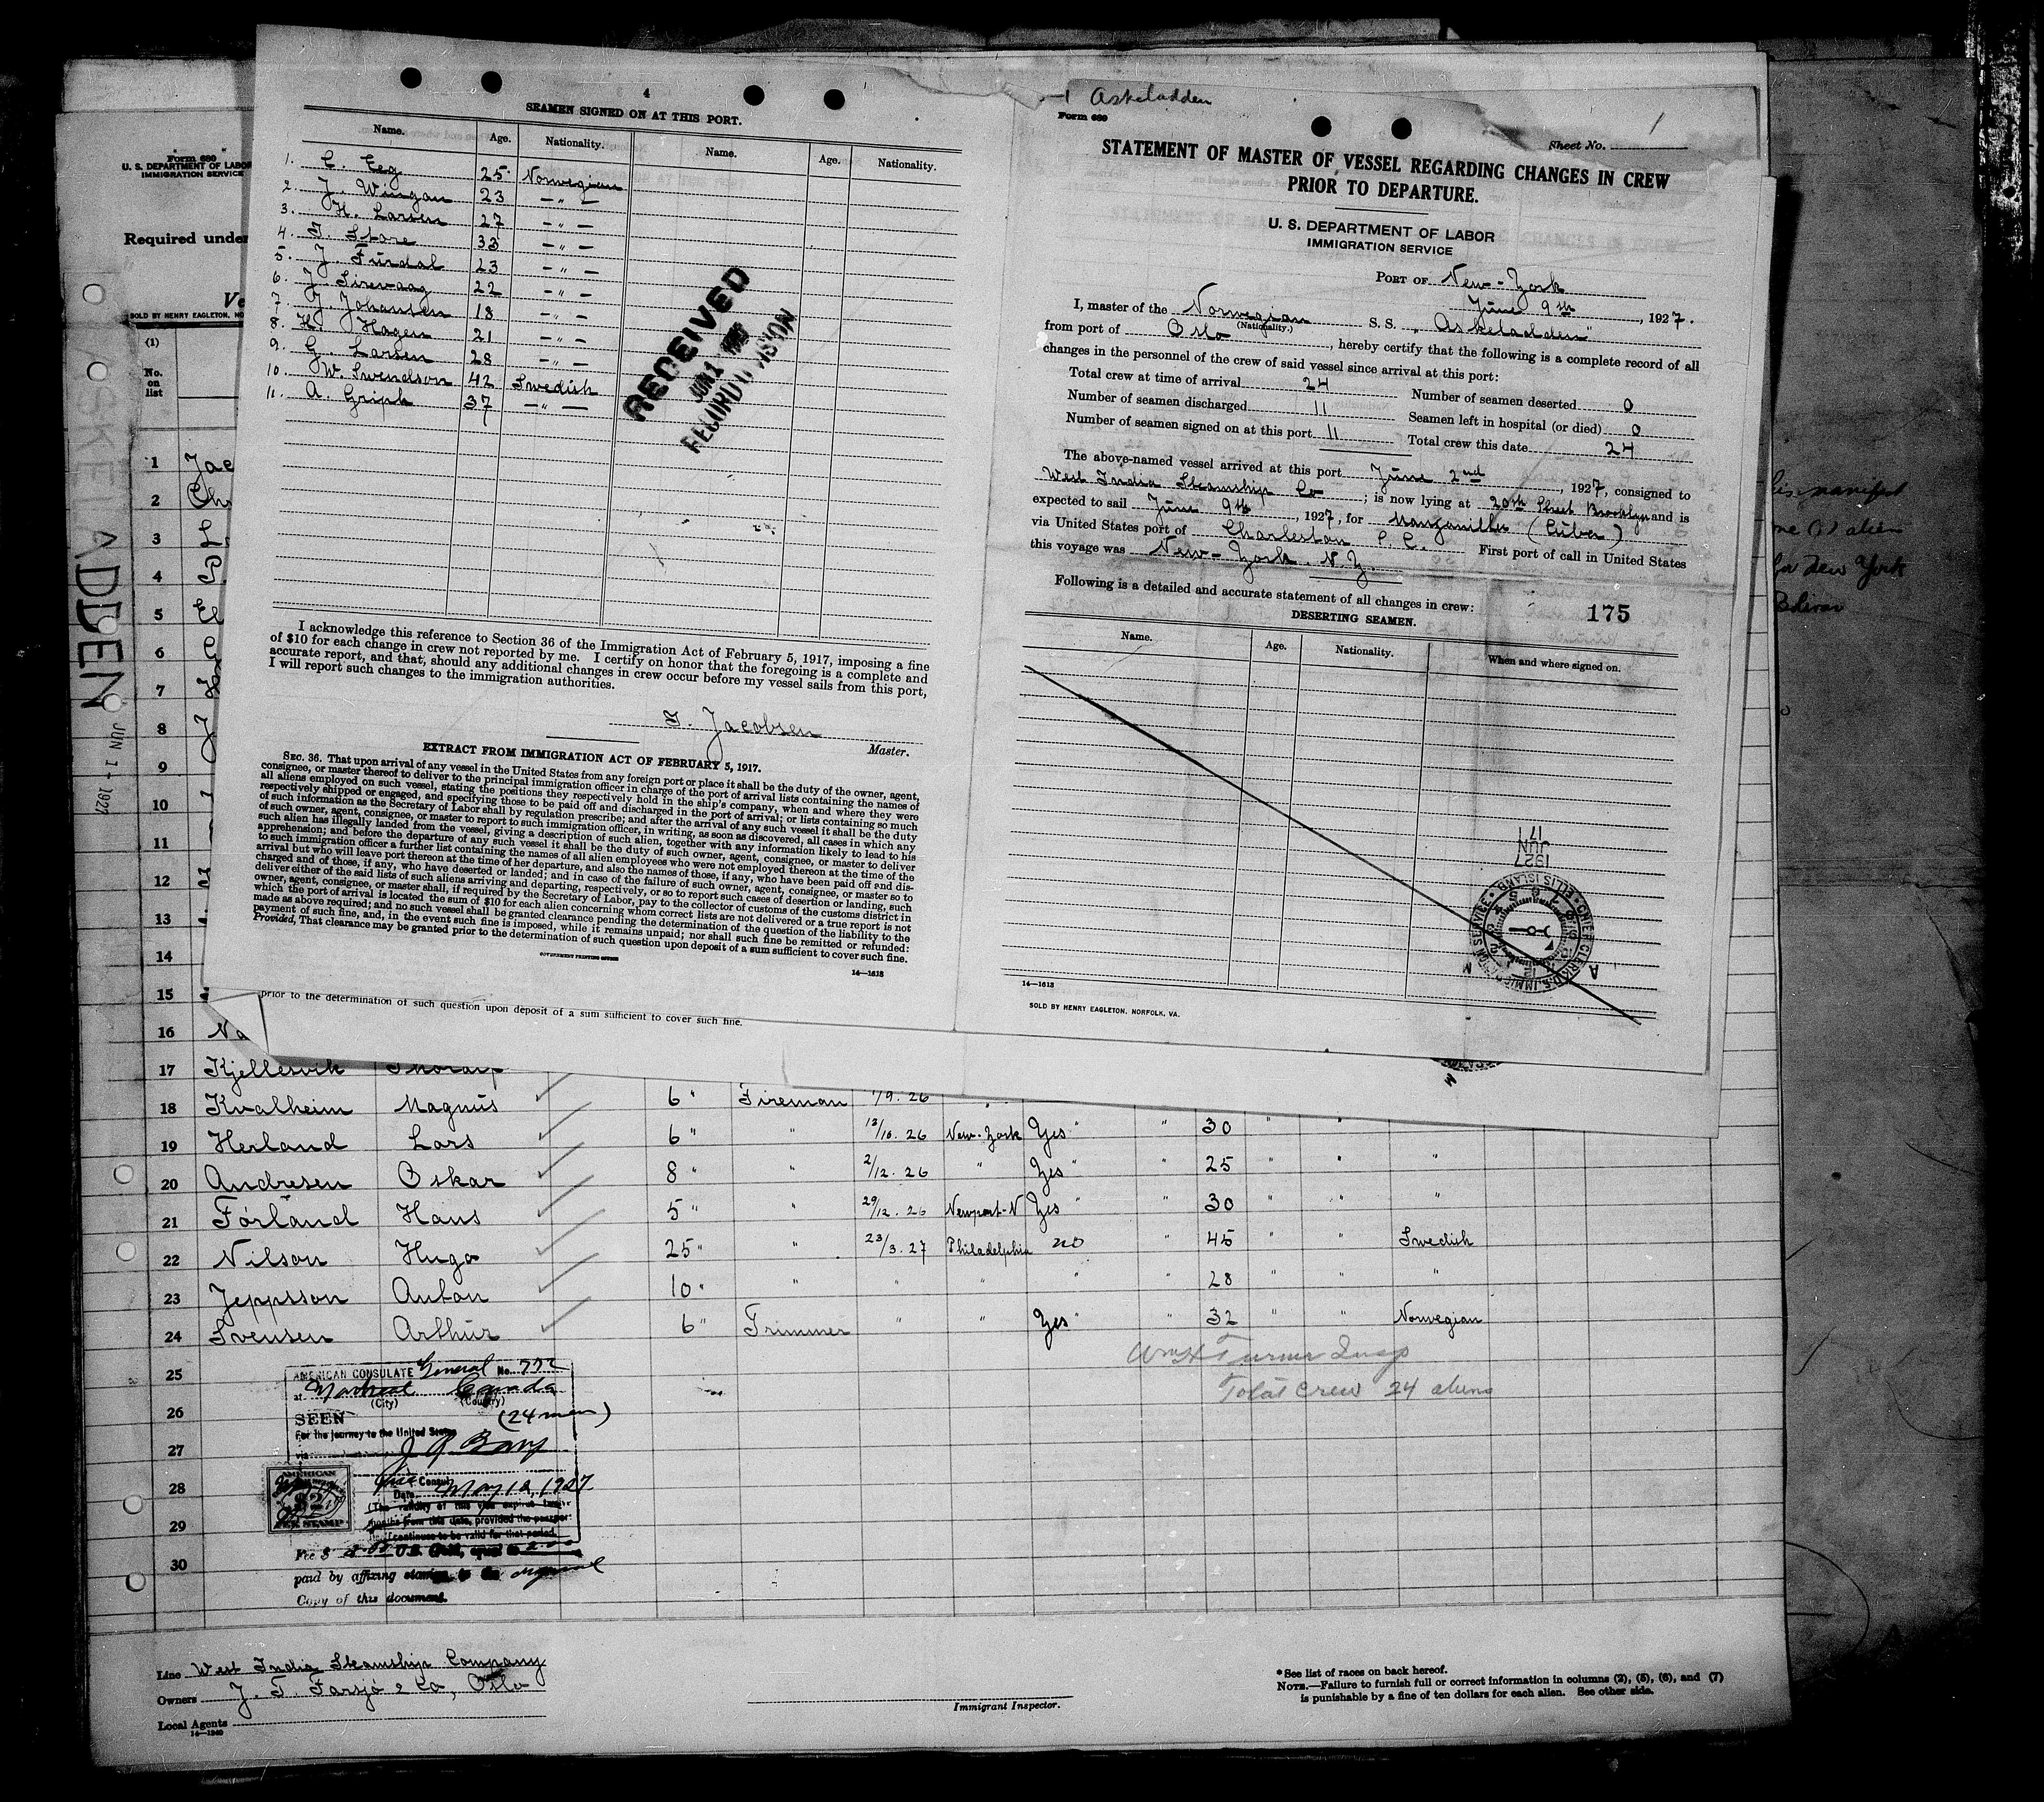 4
SEAMEN SIGNED ON AT THIS PORT.
Name. Age. Nationality. Name. Age. Nationality.
1. C. Eeg 25 Norwegian
2. J. Wingan 23 — " —
3. H. Larsen 27 — " —
4. T. Store 33 — " —
5. J. Furdal 23 — " —
6. J. Sirevaag 22 — " —
7. J. Johansen 18 — " —
8. H. Hagen 21 — " —
9. G. Larsen 28 — " —
10. W. Svendson 42 Swedish
11. A. Griph 37 — " —
RECEIVED
JUN 1
RECORD DIVISION
I acknowledge this reference to Section 36 of the Immigration Act of February 5, 1917, imposing a fine
of $10 for each change in crew not reported by me. I certify on honor that the foregoing is a complete and
accurate report, and that, should any additional changes in crew occur before my vessel sails from this port,
I will report such changes to the immigration authorities.
T. Jacobsen
Master.
EXTRACT FROM IMMIGRATION ACT OF FEBRUARY 5, 1917.
SEC. 36. That upon arrival of any vessel in the United States from any foreign port or place it shall be the duty of the owner, agent,
consignee, or master thereof to deliver to the principal immigration officer in charge of the port of arrival lists containing the names of
all aliens employed on such vessel, stating the positions they respectively hold in the ship's company, when and where they were
respectively shipped or engaged, and specifying those to be paid off and discharged in the port of arrival; or lists containing so much
of such information as the Secretary of Labor shall by regulation prescribe; and after the arrival of any such vessel it shall be the duty
of such owner, agent, consignee, or master to report to such immigration officer, in writing, as soon as discovered, all cases in which any
such alien has illegally landed from the vessel, giving a description of such alien, together with any information likely to lead to his
apprehension; and before the departure of any such vessel it shall be the duty of such owner, agent, consignee, or master to deliver
to such immigration officer a further list containing the names of all alien employees who were not employed thereon at the time of the
arrival but who will leave port thereon at the time of her departure, and also the names of those, if any, who have been paid off and dis-
charged and of those, if any, who have deserted or landed; and in case of the failure of such owner, agent, consignee, or master so to
deliver either of the said lists of such aliens arriving and departing, respectively, or so to report such cases of desertion or landing, such
owner, agent, consignee, or master shall, if required by the Secretary of Labor, pay to the collector of customs of the customs district in
which the port of arrival is located the sum of $10 for each alien concerning whom correct lists are not delivered or a true report is not
made as above required; and no such vessel shall be granted clearance pending the determination of the question of the liability to the
payment of such fine, and, in the event such fine is imposed, while it remains unpaid; nor shall such fine be remitted or refunded:
Provided, That clearance may be granted prior to the determination of such question upon deposit of a sum sufficient to cover such fine.
GOVERNMENT PRINTING OFFICE
14—1618
prior to the determination of such question upon deposit of a sum sufficient to cover such fine.
Askeladden
Form 689
Sheet No. 1
STATEMENT OF MASTER OF VESSEL REGARDING CHANGES IN CREW
PRIOR TO DEPARTURE.
U. S. DEPARTMENT OF LABOR
IMMIGRATION SERVICE
PORT OF New-York
June 9th, 1927.
I, master of the Norwegian S. S. "Askeladden"
(Nationality.)
from port of Oslo, hereby certify that the following is a complete record of all
changes in the personnel of the crew of said vessel since arrival at this port:
Total crew at time of arrival 24
Number of seamen deserted 0
Number of seamen discharged 11
Seamen left in hospital (or died) 0
Number of seamen signed on at this port 11
Total crew this date 24
The above-named vessel arrived at this port June 2nd, 1927, consigned to
West India Steamship Co; is now lying at 20th Street Brooklyn and is
expected to sail June 9th, 1927, for Manzanillo (Cuba)
via United States port of Charleston S. C. First port of call in United States
this voyage was New-York. N.Y.
Following is a detailed and accurate statement of all changes in crew:
175
DESERTING SEAMEN.
Name. Age. Nationality. When and where signed on.
1927
JUN
17
CHIEF CLERK U.S. IMMIGRATION SERVICE ELLIS ISLAND
14—1613
SOLD BY HENRY EAGLETON, NORFOLK, VA.
Form 680
U. S. DEPARTMENT OF LABOR
IMMIGRATION SERVICE
Required under
Ve
SOLD BY HENRY EAGLETON, NO
(1)
No.
on
list
ASKELADDEN
JUN 1 - 1927
1 Jac
2 Ch
3
4
5 El
6
7
8
9
10
11
12
13
14
15
16 Na
17 Kjellesvik
18 Kvalheim Magnus 6 " Fireman 1/9. 26
19 Herland Lars 6 " " 12/10. 26 New-York Yes " " 30 " "
20 Andresen Oskar 8 " " 2/12. 26 " Yes " " 25 " " "
21 Førland Hans 5 " " 29/12. 26 Newport-N Yes " " 30 " " "
22 Nilson Hugo 25 " " 23/3. 27 Philadelphia no " 45 " " Swedish
23 Jeppsson Anton 10 " " " " " " 28 " " "
24 Svensen Arthur 6 " Trimmer " " Yes " " 32 " " Norwegian
25
26
27
28
29
30
Wm H Turner Insp
Total crew 24 aliens
AMERICAN CONSULATE General No. 772
at Montreal Canada
(City) (Country)
SEEN (24 men)
For the journey to the United States
via
Vice Consul
Date May 12, 1927
(The validity of this visa expires twelve
months from this date, provided the passport
continues to be valid for that period.
AMERICAN
$2
FEE STAMP
Fee $ U.S. Gold, equal to
paid by affixing stamps to the original
Copy of this document.
Line West India Steamship Company
Owners J. T. Farsjø & Co, Oslo
Local Agents
14—1240
Immigrant Inspector.
*See list of races on back hereof.
NOTE.—Failure to furnish full or correct information in columns (2), (5), (6), and (7)
is punishable by a fine of ten dollars for each alien. See other side.
his manifest
one (1) alien
for New York
Bolivar